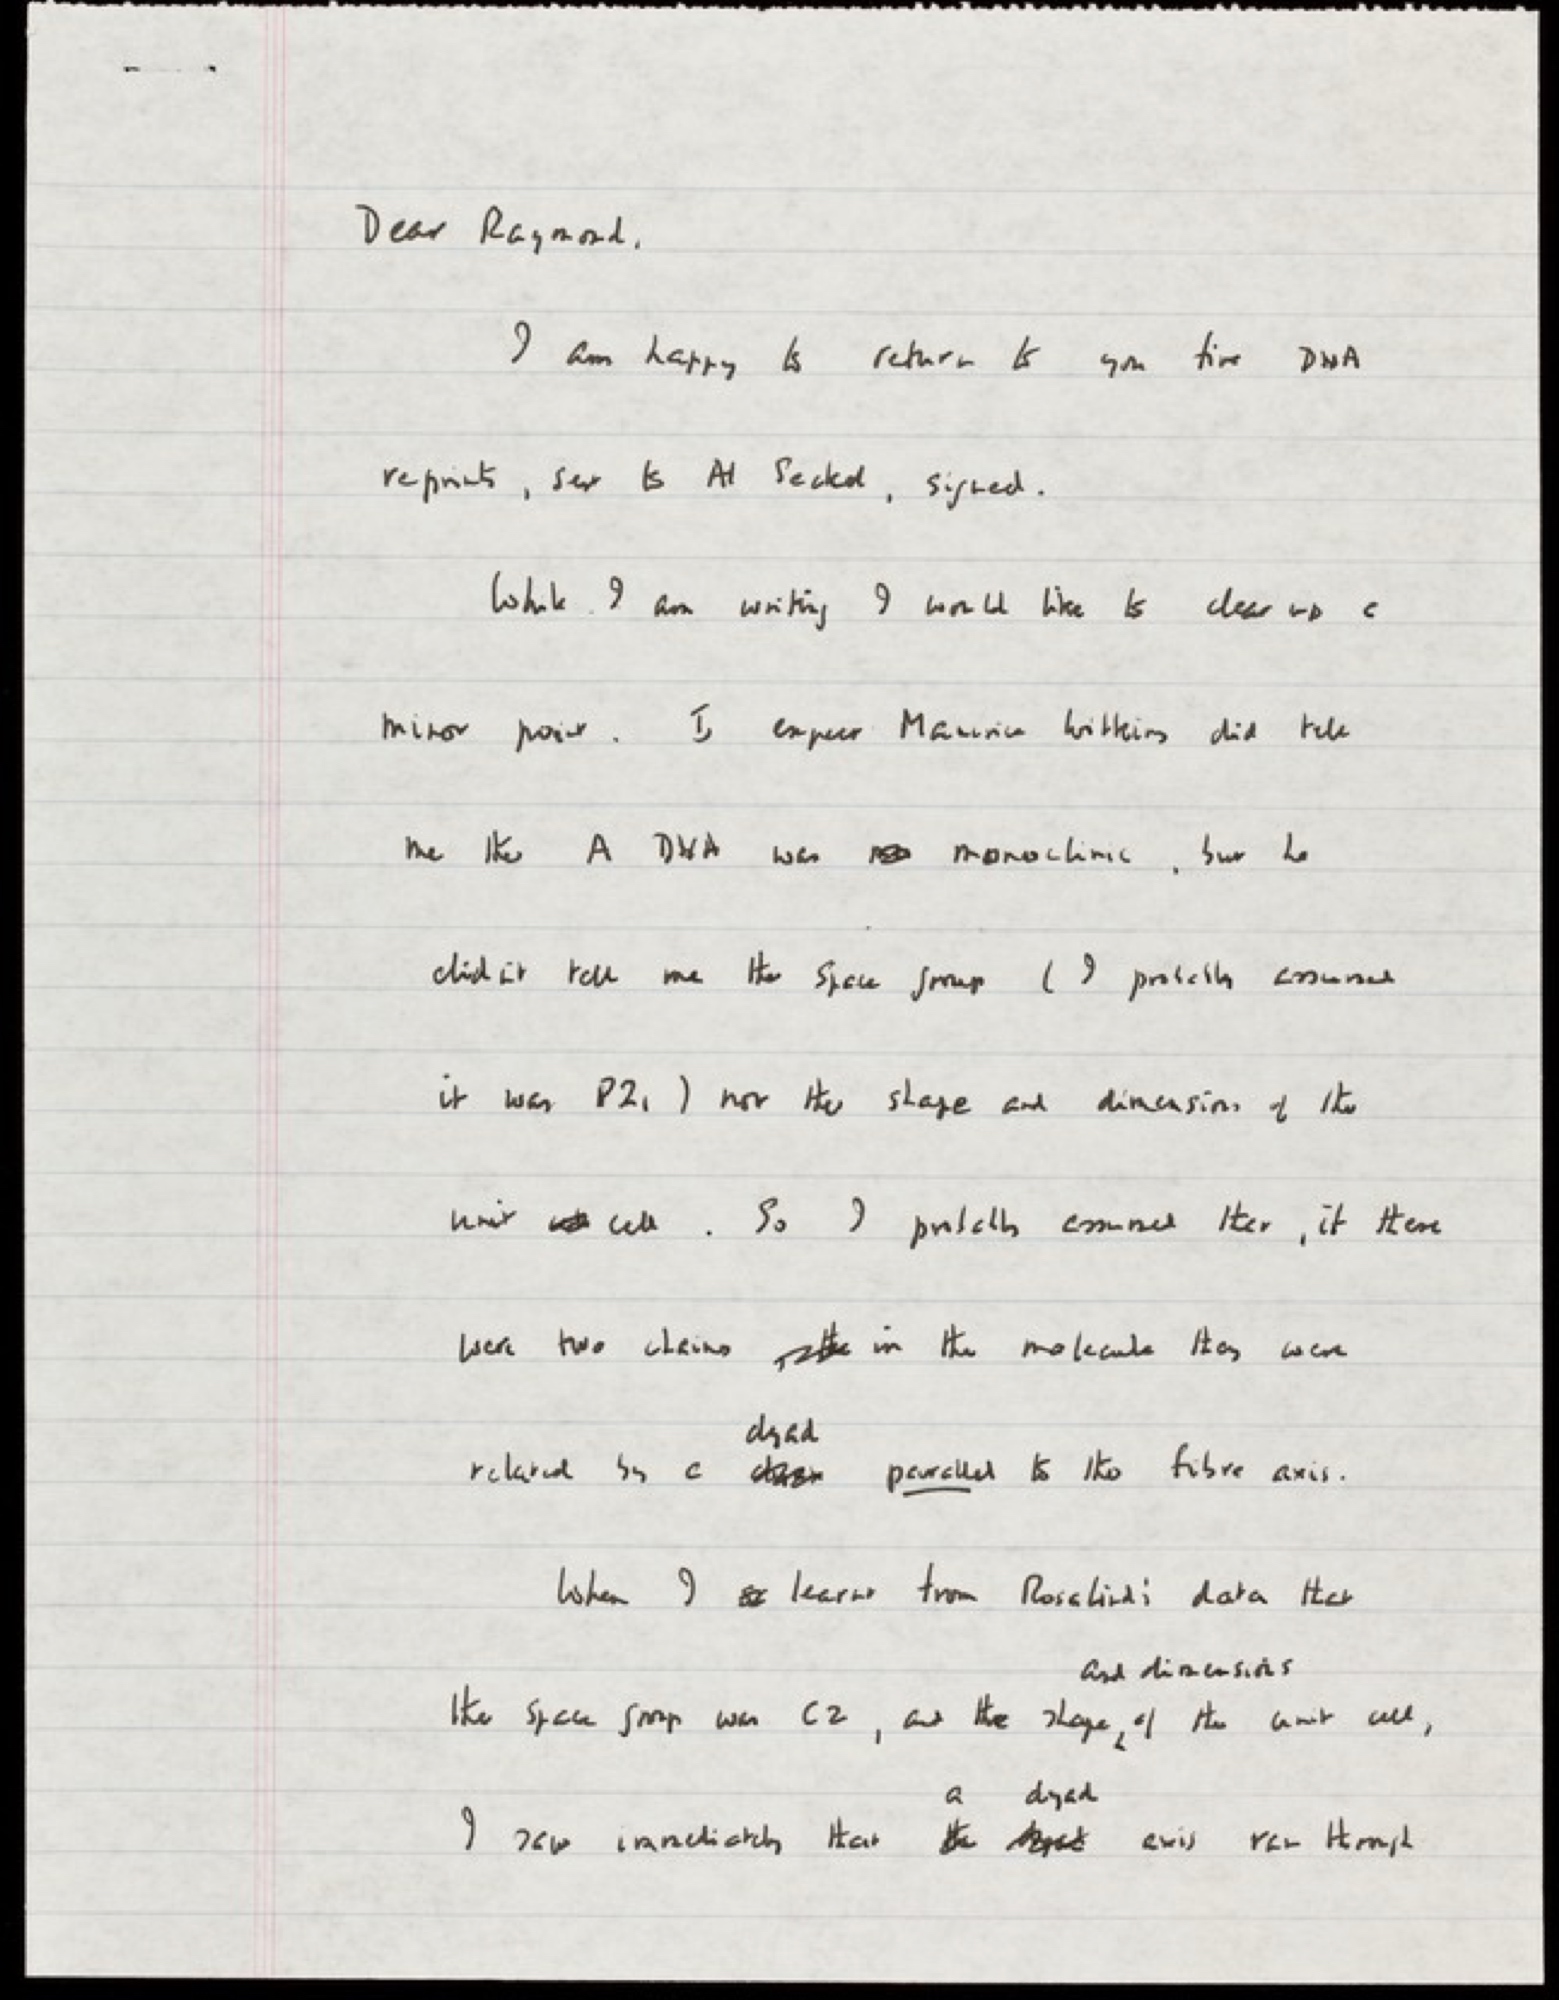 Dear Raymond,
I am happy to return to you five DNA
reprints, sent to Al Seckel, signed.
While I am writing I would like to clear up a
minor point. I expect Maurice Wilkins did tell
me the A DNA was monoclinic, but he
didn't tell me the space group (I probably assumed
it was P2₁) nor the shape and dimensions of the
unit cell. So I probably assumed that, if there
were two chains in the molecule they were
dyad
related by a parallel to the fibre axis.
When I learnt from Rosalind's data that
and dimensions
the space group was C2, and the shape of the unit cell,
a dyad
I saw immediately that axis ran through